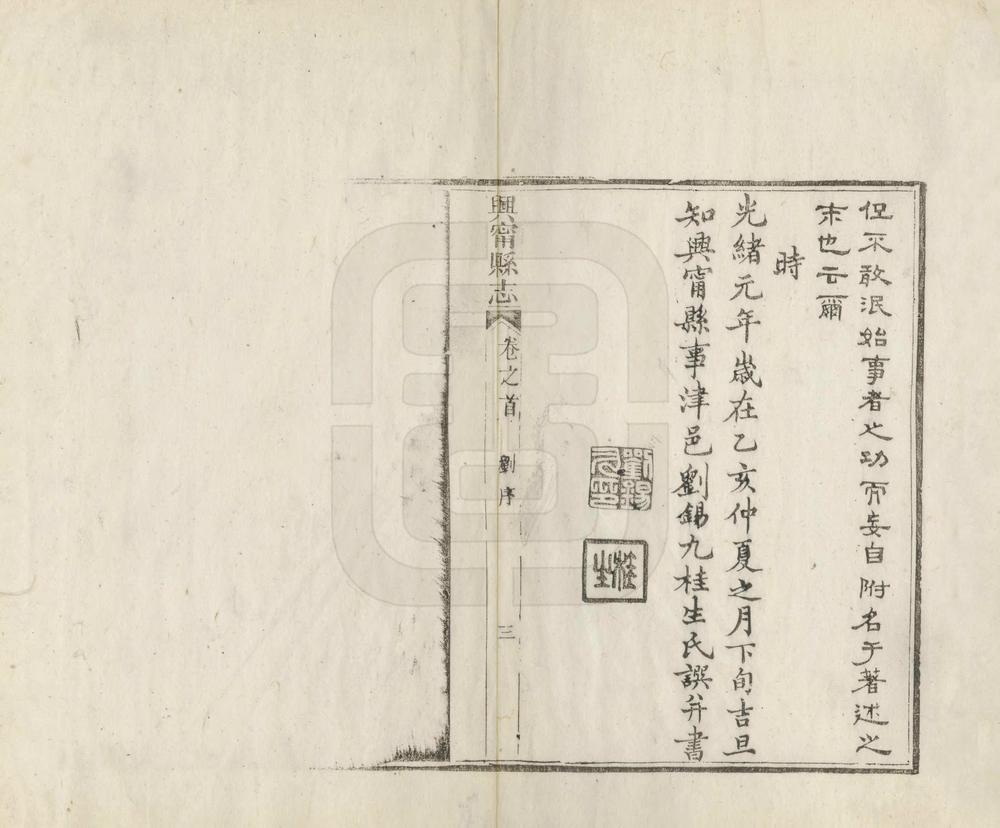 但不敢泯始事者之功而妄自附名于著述之
末也云爾
時
光緒元年歲在乙亥仲夏之月下旬吉旦
知興甯縣事津邑劉錫九桂生氏譔并書
劉錫九印
桂生
興甯縣志
卷之首
劉序
三